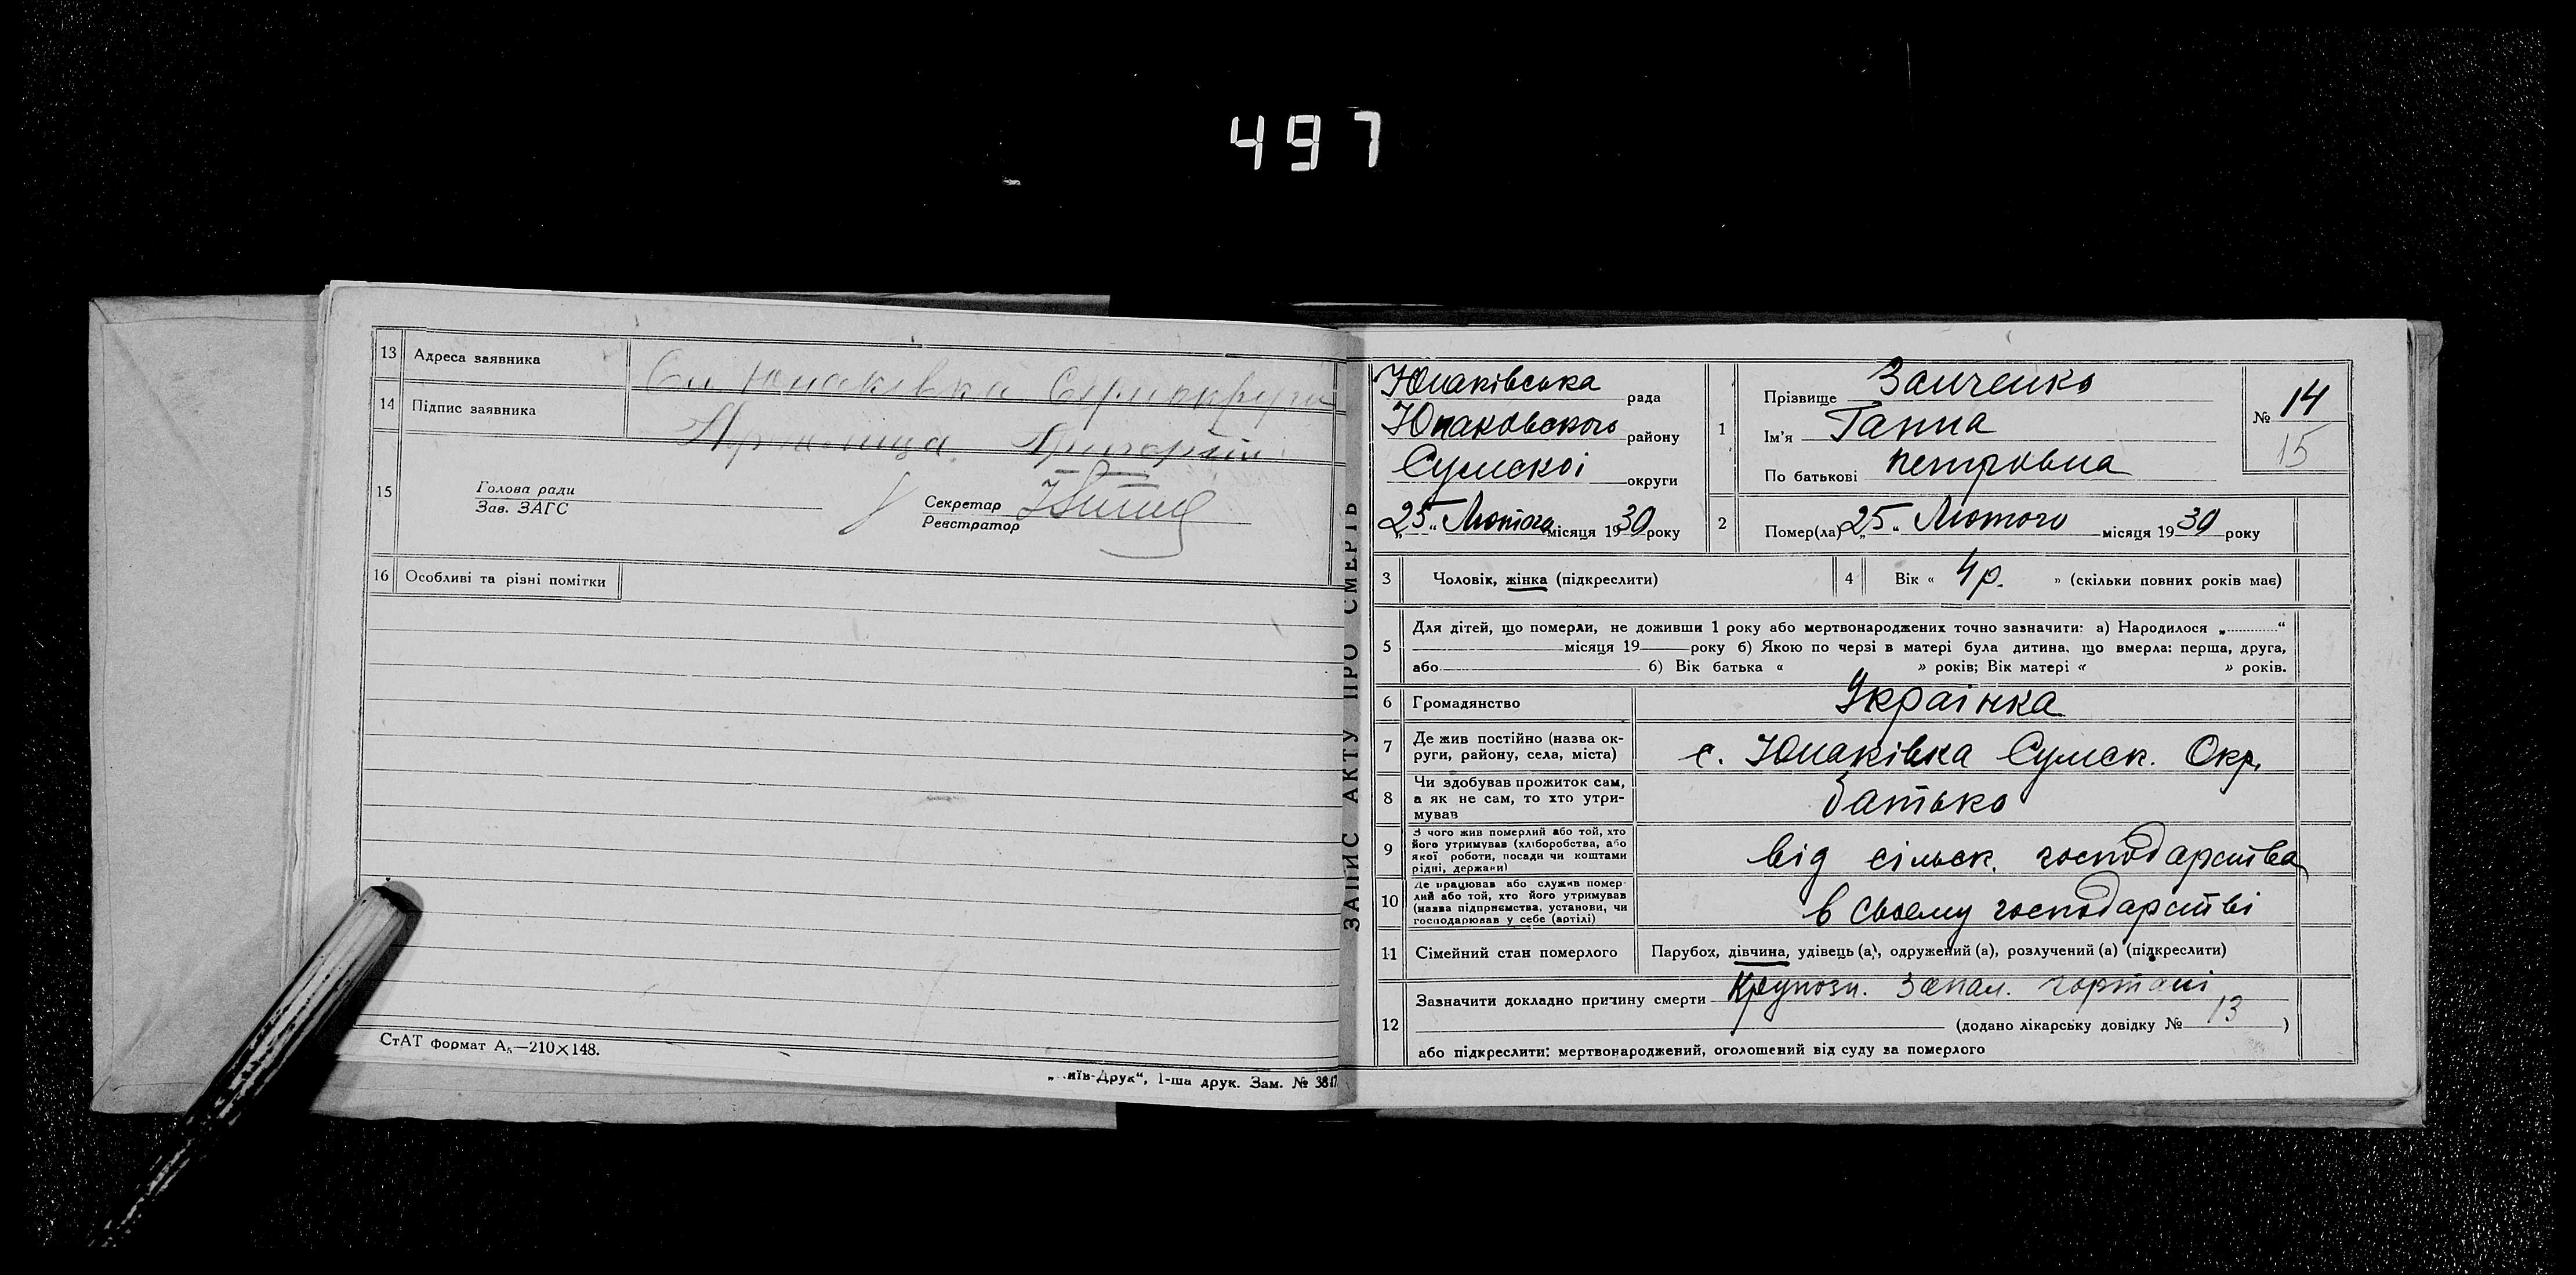 497
13 Адреса заявника Сл Юнаківка Сумокруги
14 Підпис заявника Григорій
15 Голова ради
Зав. ЗАГС
Секретар
Реєстратор
16 Особливі та різні помітки
СтАТ формат А₅—210×148.
„Київ-Друк“, 1-ша друк. Зам. № 3817
ЗАПИС АКТУ ПРО СМЕРТЬ
Юнаківська рада
Юнаковского району
Сумскоі округи
„25“ Лютого місяця 1930 року
1 Прізвище Заиченко
Ім'я Ганна
По батькові петровна
№ 14
15
2 Помер(ла) „25“ Лютого місяця 1930 року
3 Чоловік, жінка (підкреслити)
4 Вік « 4р. » (скільки повних років має)
5 Для дітей, що померли, не доживши 1 року або мертвонароджених точно зазначити: а) Народилося „ “
місяця 19 року б) Якою по черзі в матері була дитина, що вмерла: перша, друга,
або б) Вік батька « » років; Вік матері « » років.
6 Громадянство Украінка
7 Де жив постійно (назва ок-
руги, району, села, міста) с. Юнаківка Сумск. Окр.
8 Чи здобував прожиток сам,
а як не сам, то хто утри-
мував батько
9 З чого жив померлий або той, хто
його утримував (хліборобства, або
якої роботи, посади чи коштами
рідні, держави) від сільск. господарства
10 Де працював або служив помер-
лий або той, хто його утримував
(назва підприємства, установи, чи
господарював у себе (артілі) в своему господарстві
11 Сімейний стан померлого Парубок, дівчина, удівець (а), одружений (а), розлучений (а) (підкреслити)
12 Зазначити докладно причину смерти Крупозн. Запал. гортані
(додано лікарську довідку № 13 )
або підкреслити: мертвонароджений, оголошений від суду за померлого